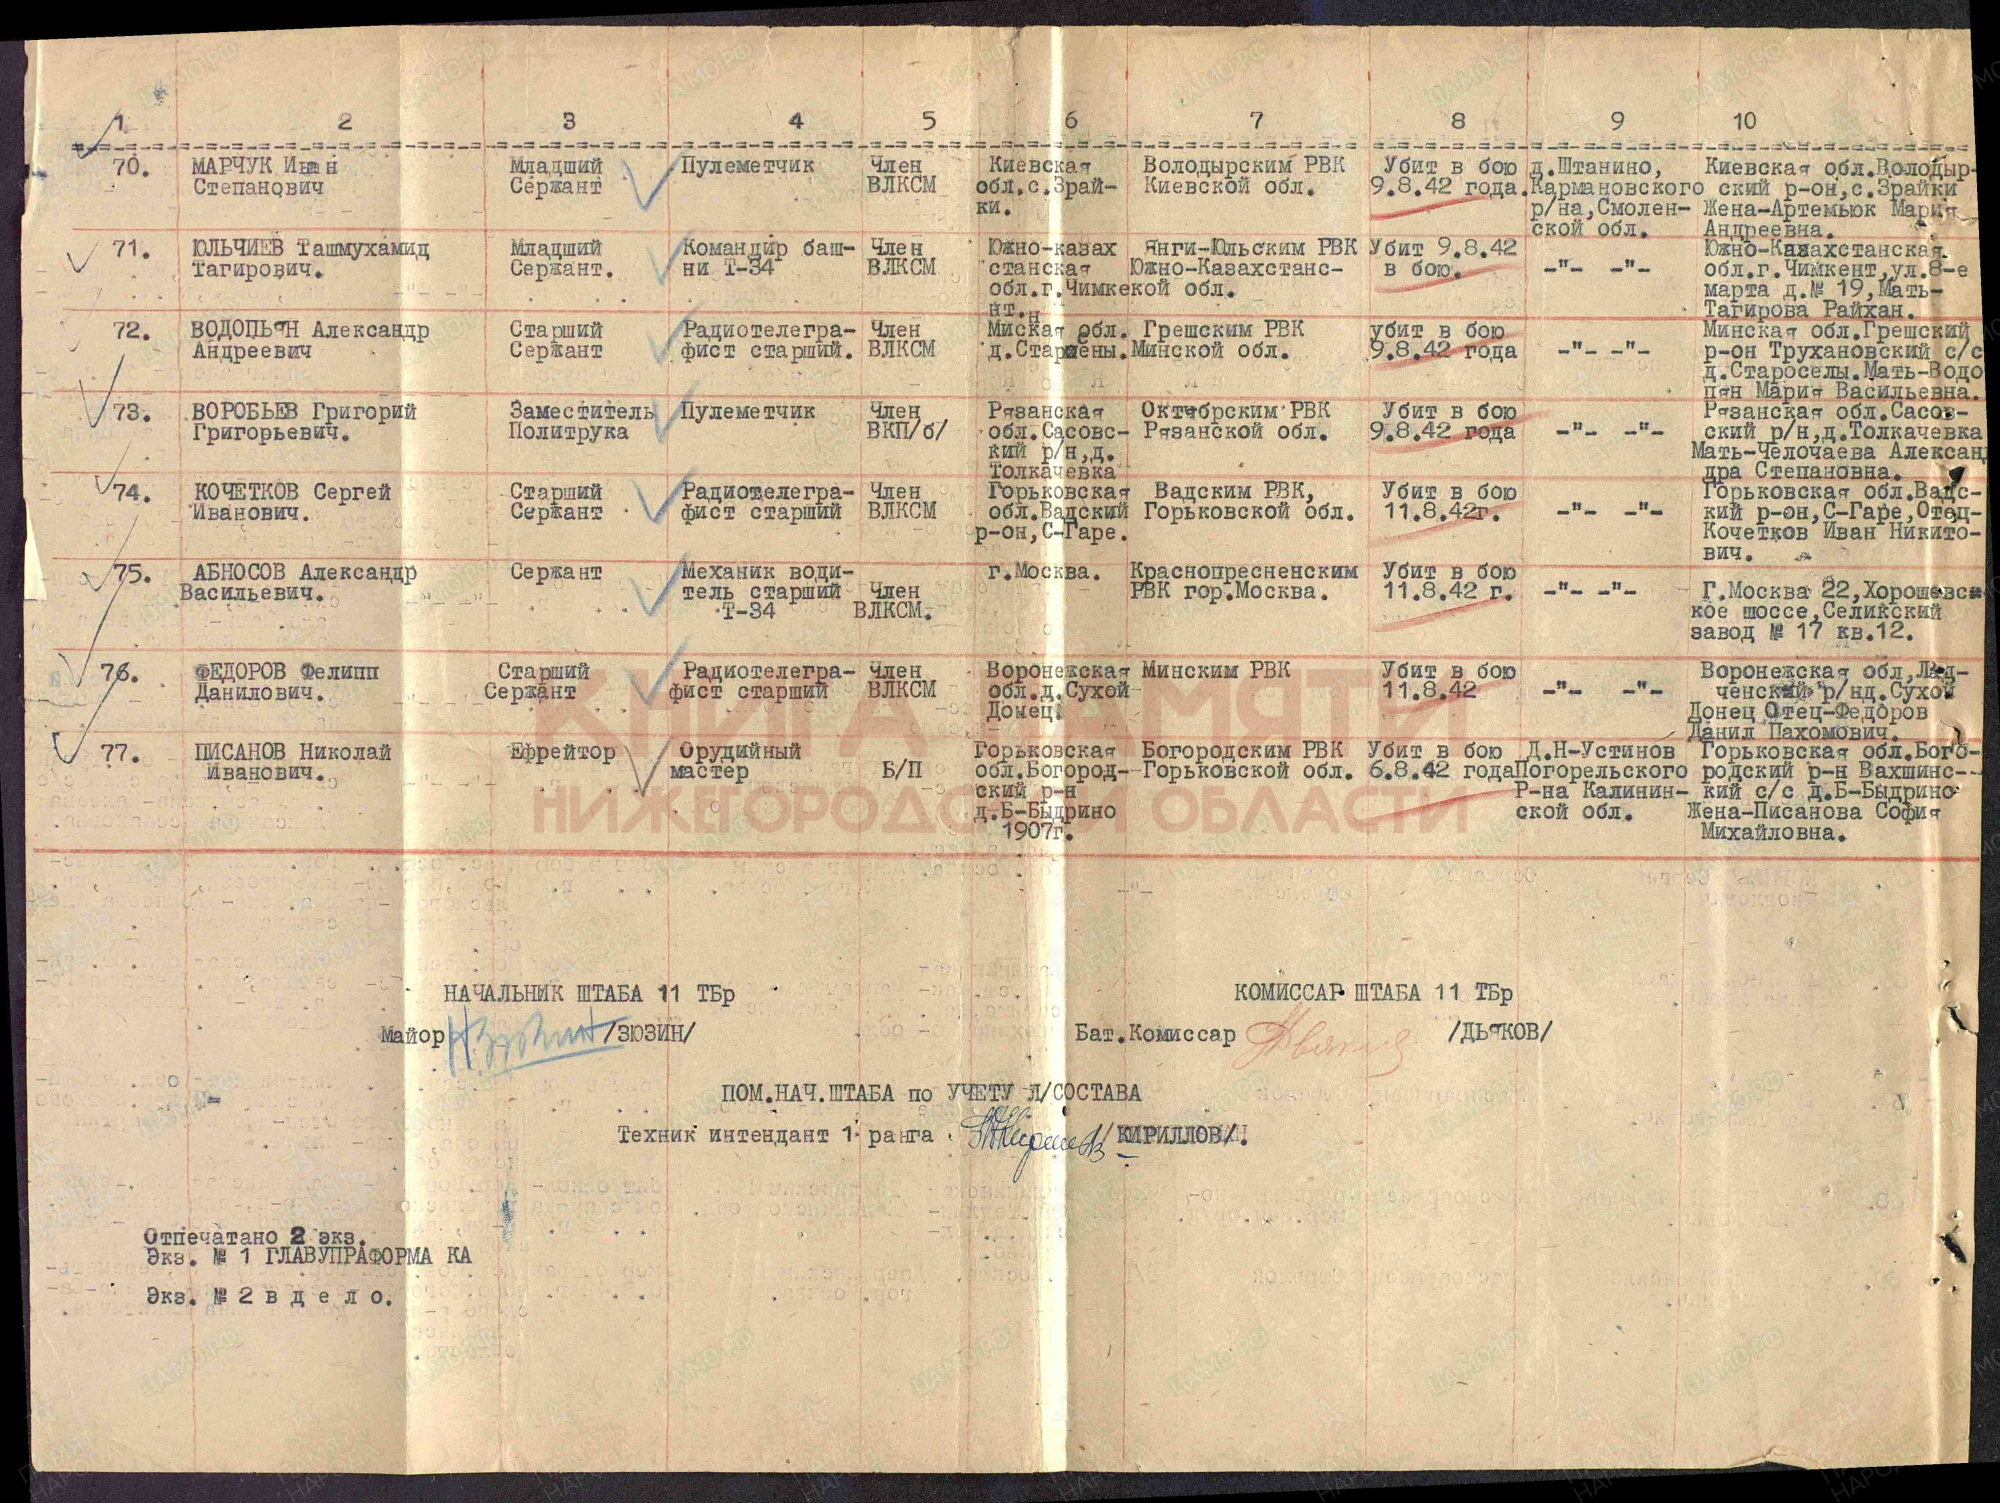 1 2 3 4 5 6 7 8 9 10
70. МАРЧУК Иван Младший Пулеметчик Член Киевская Володырским РВК Убит в бою д.Штанино, Киевская обл.Володыр-
Степанович Сержант ВЛКСМ обл.с.Зрай- Киевской обл. 9.8.42 года. Кармановского ский р-он,с.Зрайки
ки. р/на,Смолен- Жена-Артемьюк Мария
ской обл. Андреевна.
71. ЮЛЬЧИЕВ Ташмухамид Младший Командир баш- Член Южно-казах Янги-Юльским РВК Убит 9.8.42 Южно-Казахстанская
Тагирович. Сержант. ни Т-34 ВЛКСМ станская Южно-Казахстанс- в бою. -"- -"- обл.г.Чимкент,ул.8-е
обл.г.Чимкекой обл. марта д.№ 19,Мать-
нт. Тагирова Райхан.
72. ВОДОПЬЯН Александр Старший Радиотелегра- Член Миская обл. Грешским РВК убит в бою Минская обл.Грешский
Андреевич Сержант фист старший. ВЛКСМ Минской обл. 9.8.42 года -"- -"- р-он Трухановский с/с
д.Староселы.Мать-Водо
пян Мария Васильевна.
73. ВОРОБЬЕВ Григорий Заместитель Пулеметчик Член Рязанская Октябрским РВК Убит в бою Рязанская обл.Сасов-
Григорьевич. Политрука ВКП/б/ обл.Сасовс- Рязанской обл. 9.8.42 года -"- -"- ский р/н,д.Толкачевка
кий р/н,д. Мать-Челочаева Алексан
Толкачевка дра Степановна.
74. КОЧЕТКОВ Сергей Старший Радиотелегра- Член Горьковская Вадским РВК, Убит в бою Горьковская обл.Вадс-
Иванович. Сержант фист старший ВЛКСМ обл.Вадский Горьковской обл. 11.8.42г. -"- -"- кий р-он,С-Гаре,Отец-
р-он,С-Гаре. Кочетков Иван Никито-
вич.
75. АБНОСОВ Александр Сержант Механик води- г.Москва. Краснопресненским Убит в бою
Васильевич. тель старший Член РВК гор.Москва. 11.8.42 г. -"- -"- Г.Москва 22,Хорошевс
Т-34 ВЛКСМ. кое шоссе,Селикский
завод № 17 кв.12.
76. ФЕДОРОВ Фелипп Старший Радиотелегра- Член Воронежская Минским РВК Убит в бою Воронежская обл,
Данилович. Сержант фист старший ВЛКСМ обл.д.Сухой 11.8.42 -"- -"- ченский р/нд.Сухой
Донец. Донец Отец-Федоров
Данил Пахомович.
77. ПИСАНОВ Николай Ефрейтор Орудийный Горьковская Богородским РВК Убит в бою Д.Н-Устинов Горьковская обл.Бого-
Иванович. мастер Б/П обл.Богород- Горьковской обл. 6.8.42 года Погорельского родский р-н Вахшинс-
ский р-н Р-на Калинин- кий с/с д.Б-Быдрино
д.Б-Быдрино ской обл. Жена-Писанова София
1907г. Михайловна.
КНИГА ПАМЯТИ
НИЖЕГОРОДСКОЙ ОБЛАСТИ
НАЧАЛЬНИК ШТАБА 11 ТБр КОМИССАР ШТАБА 11 ТБр
Майор /ЗЮЗИН/ Бат.Комиссар /ДЬЯКОВ/
ПОМ.НАЧ.ШТАБА по УЧЕТУ Л/СОСТАВА
Техник интендант 1 ранга /КИРИЛЛОВ/.
Отпечатано 2 экз.
Экз. № 1 ГЛАВУПРАФОРМА КА
Экз. № 2 в д е л о.